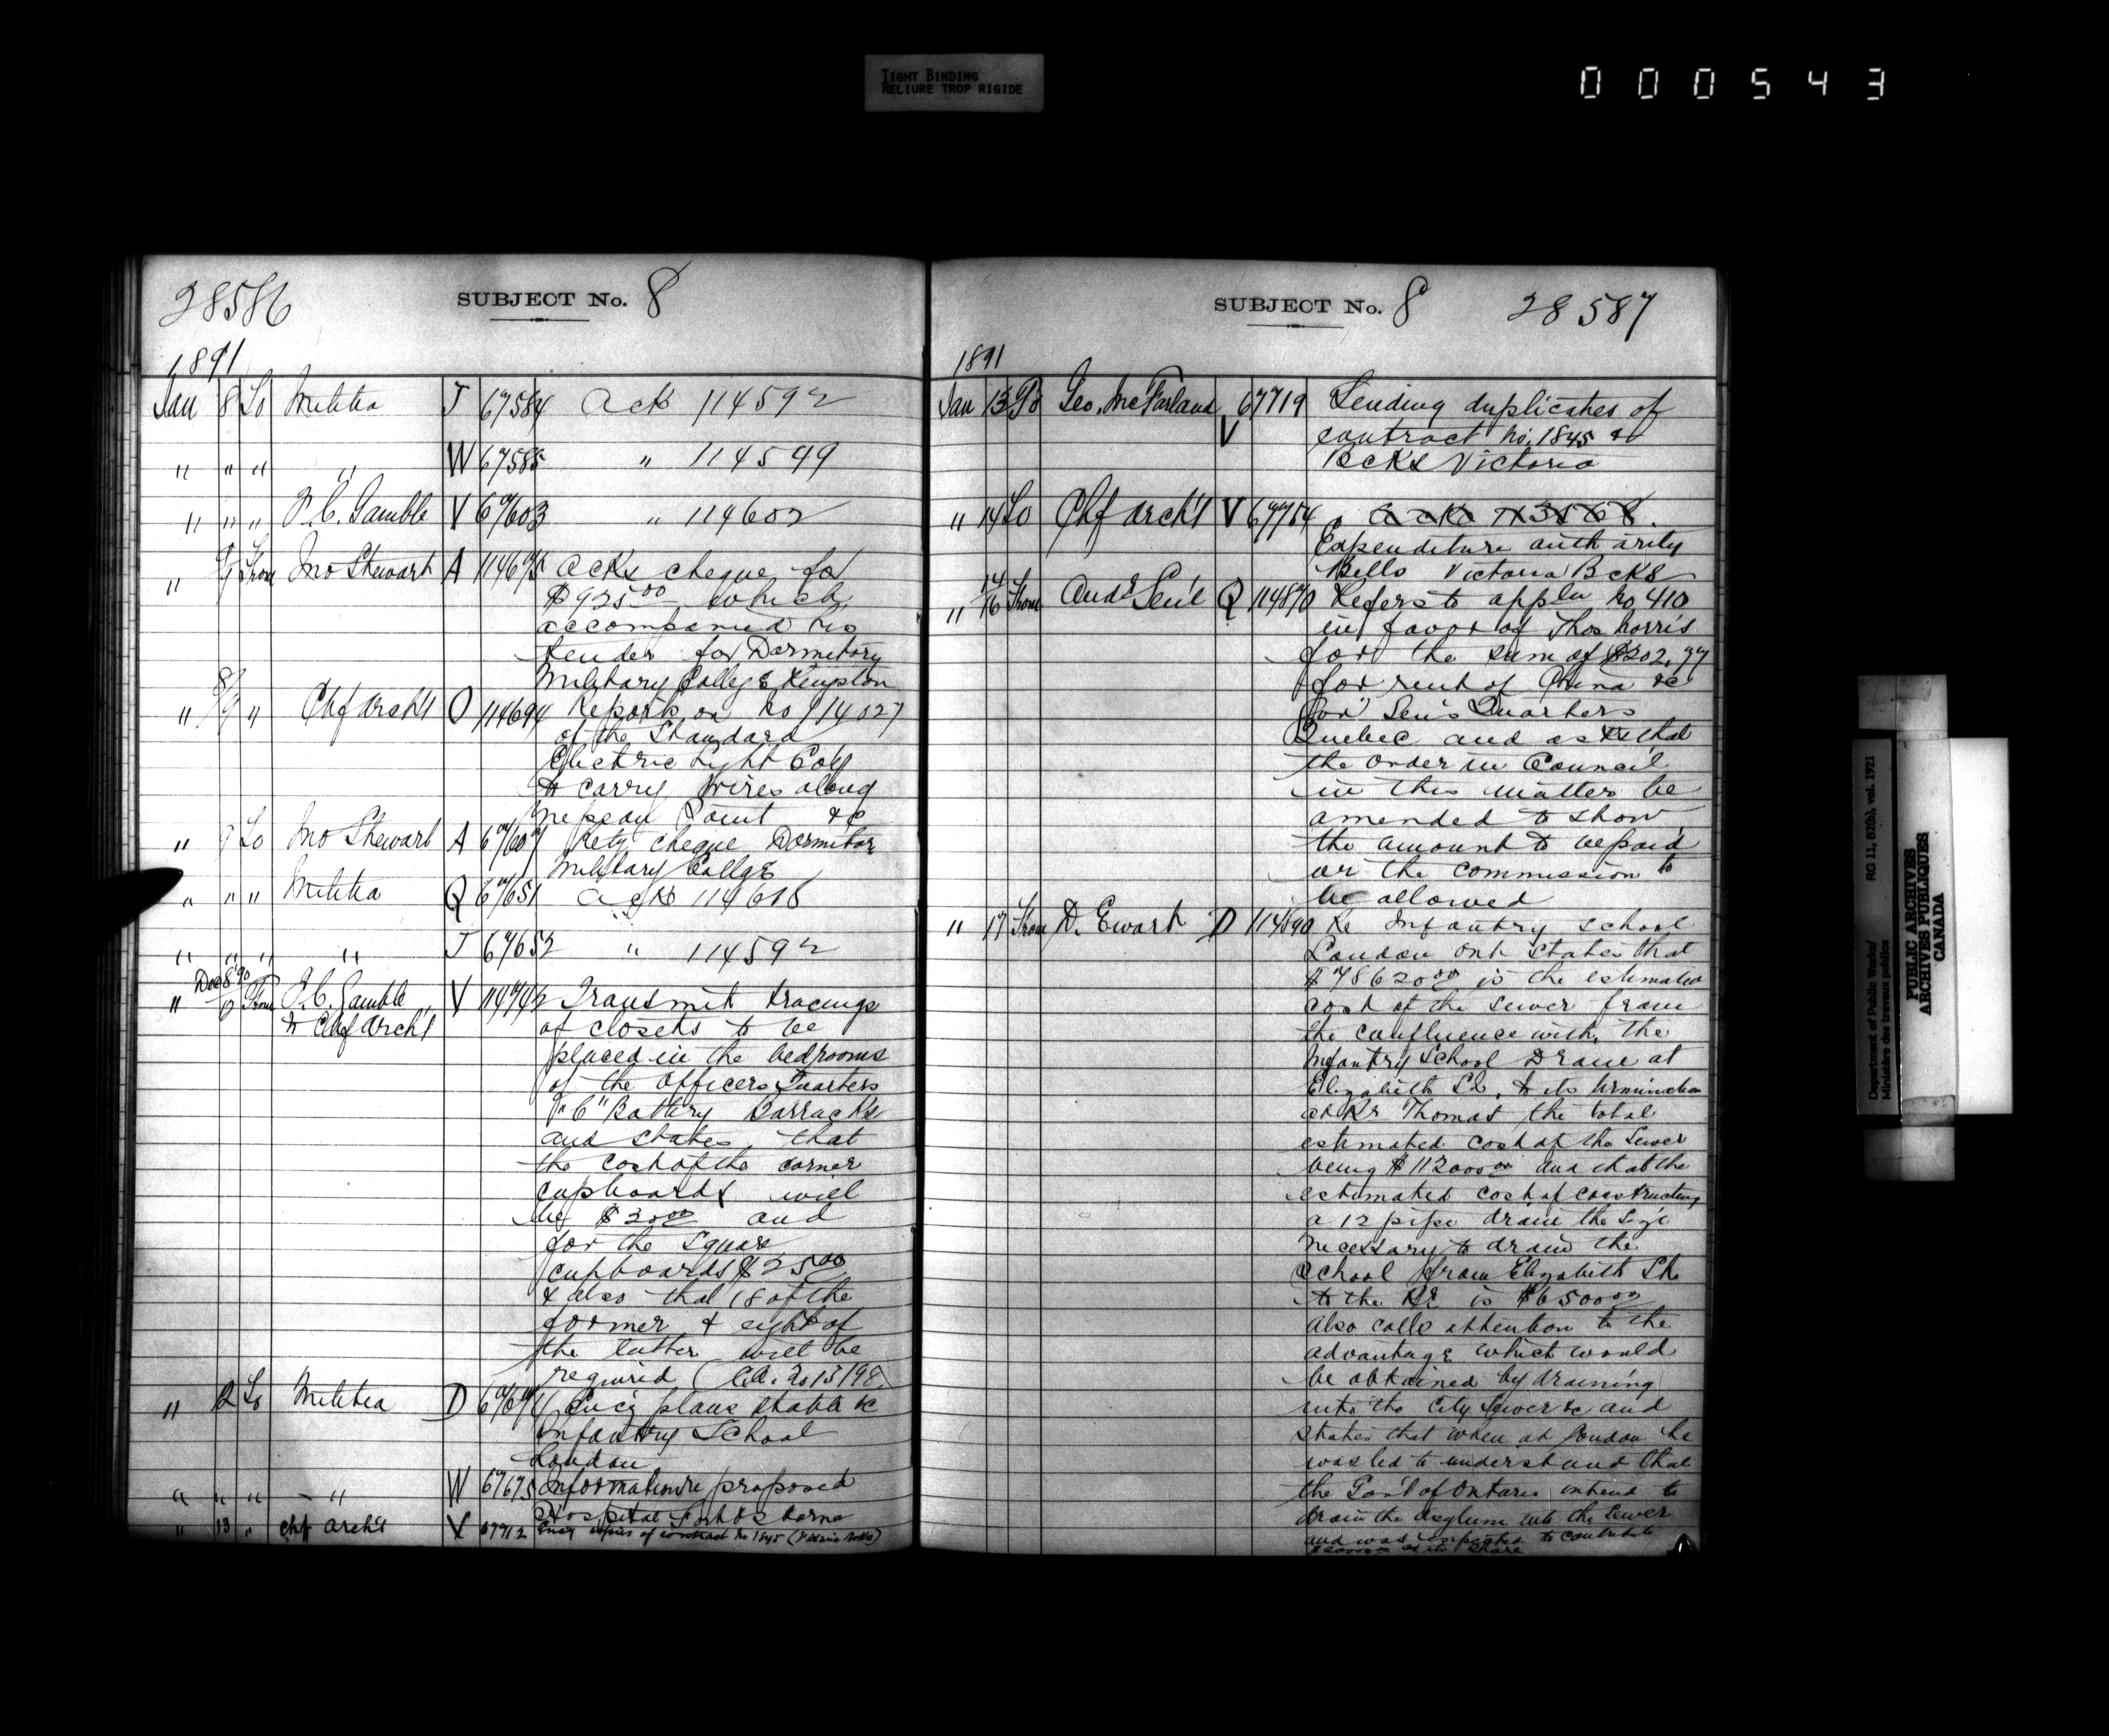 TIGHT BINDING
RELIURE TROP RIGIDE
000543
28586
SUBJECT No. 8
1891
Jan 8 To Militia J 67584 Ack 114592
" " " " W 67585 " 114549
" " " F.C. Gamble V 67603 " 114602
" 8/9 From Jno Stewart A 114675 Acks cheque for
$925.00 which
accompanied his
tender for Dormitory
Military College Kingston
" 8/9 " Chf Archt O 114694 Reports on No 114027
of the Standard
Electric Light Coy
to carry wires along
Nepean Point &c
" 9 To Jno Stewart A 67607 Retg cheque Dormitor
Military College
" " " Militia Q 67651 Acks 114618
" " " " J 67652 " 114592
Dec 8 '90
" 12 From F.C. Gamble V 114742 Transmit tracings
to Chf Archt
of closets to be
placed in the bedrooms
of the Officers Quarters
"C" Battery Barracks
and states that
the cost of the corner
cupboards will
be $30.00 and
for the square
cupboards $25.00
& also that 18 of the
former & eight of
the latter will be
required (C.A. No 13198)
" 12 To Militia D 67671 Encg plans stable &c
Infantry School
London
" " " " W 67675 Information re proposed
Hospital Fort Osborne
" 13 " Chf Archt V 67712 Encg copies of contract No 1845 (Victoria Bcks)
SUBJECT No. 8 28587
1891
Jan 13 To Geo. McFarland V 67719 Sending duplicates of
contract No. 1845 &c
Bcks Victoria
" 14 To Chf Archt V 67754 Acks 113568.
Expenditure authority
Bells Victoria Bcks
" 14/16 From Audr Gen'l Q 114870 Refers to appln No 410
in favor of Thos Norris
for the sum of $202.77
for rent of China &c
for Gen's Quarters
Quebec and asks that
the Order in Council
in this matter be
amended to show
the amount to be paid
or the commission to
be allowed
" 17 From D. Ewart D 114890 Re Infantry School
London Ont states that
$78620.00 is the estimated
cost of the sewer from
the confluence with the
Infantry School Drain at
Elizabeth St. to its termination
at Rr Thomas the total
estimated cost of the Sewer
being $112000.00 and that the
estimated cost of constructing
a 12 pipe drain the size
necessary to drain the
School from Elizabeth St
to the Rr is $6500.00
Also calls attention to the
advantage which would
be obtained by draining
into the City Sewer &c and
states that when at London he
was led to understand that
the Gov't of Ontario intend to
drain the asylum into the Sewer
and was expected to contribute
as its share
Department of Public Works/ RG 11, B2(b), vol. 1921
Ministère des travaux publics
PUBLIC ARCHIVES
ARCHIVES PUBLIQUES
CANADA